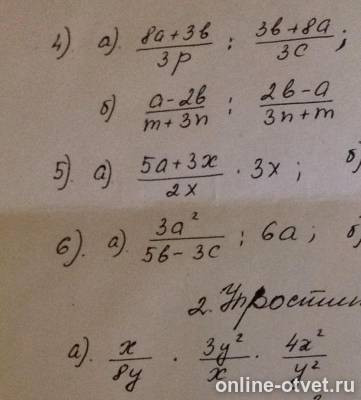 4) а) (8a+3b)/(3p) : (3b+8a)/(3c);
б) (a-2b)/(m+3n) : (2b-a)/(3n+m)
5) а) (5a+3x)/(2x) · 3x; б)
6). а) (3a²)/(5b-3c) : 6a; б)
2. Упростит
а). x/(8y) · (3y²)/x · (4x²)/(y²)
online-otvet.ru